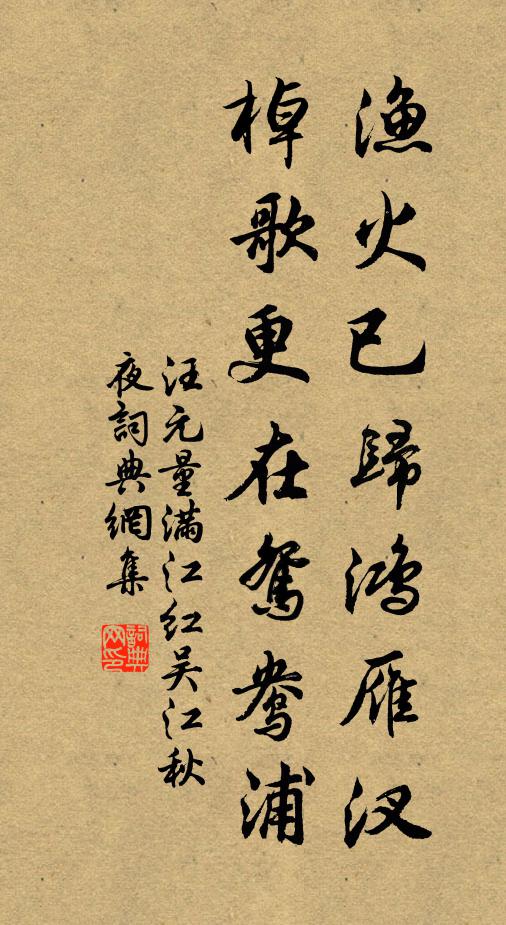 渔火已歸鸿雁汊
棹歌更在駕鸯浦
汪元量满江红吴江秋
夜詞典網集
詞典
网印